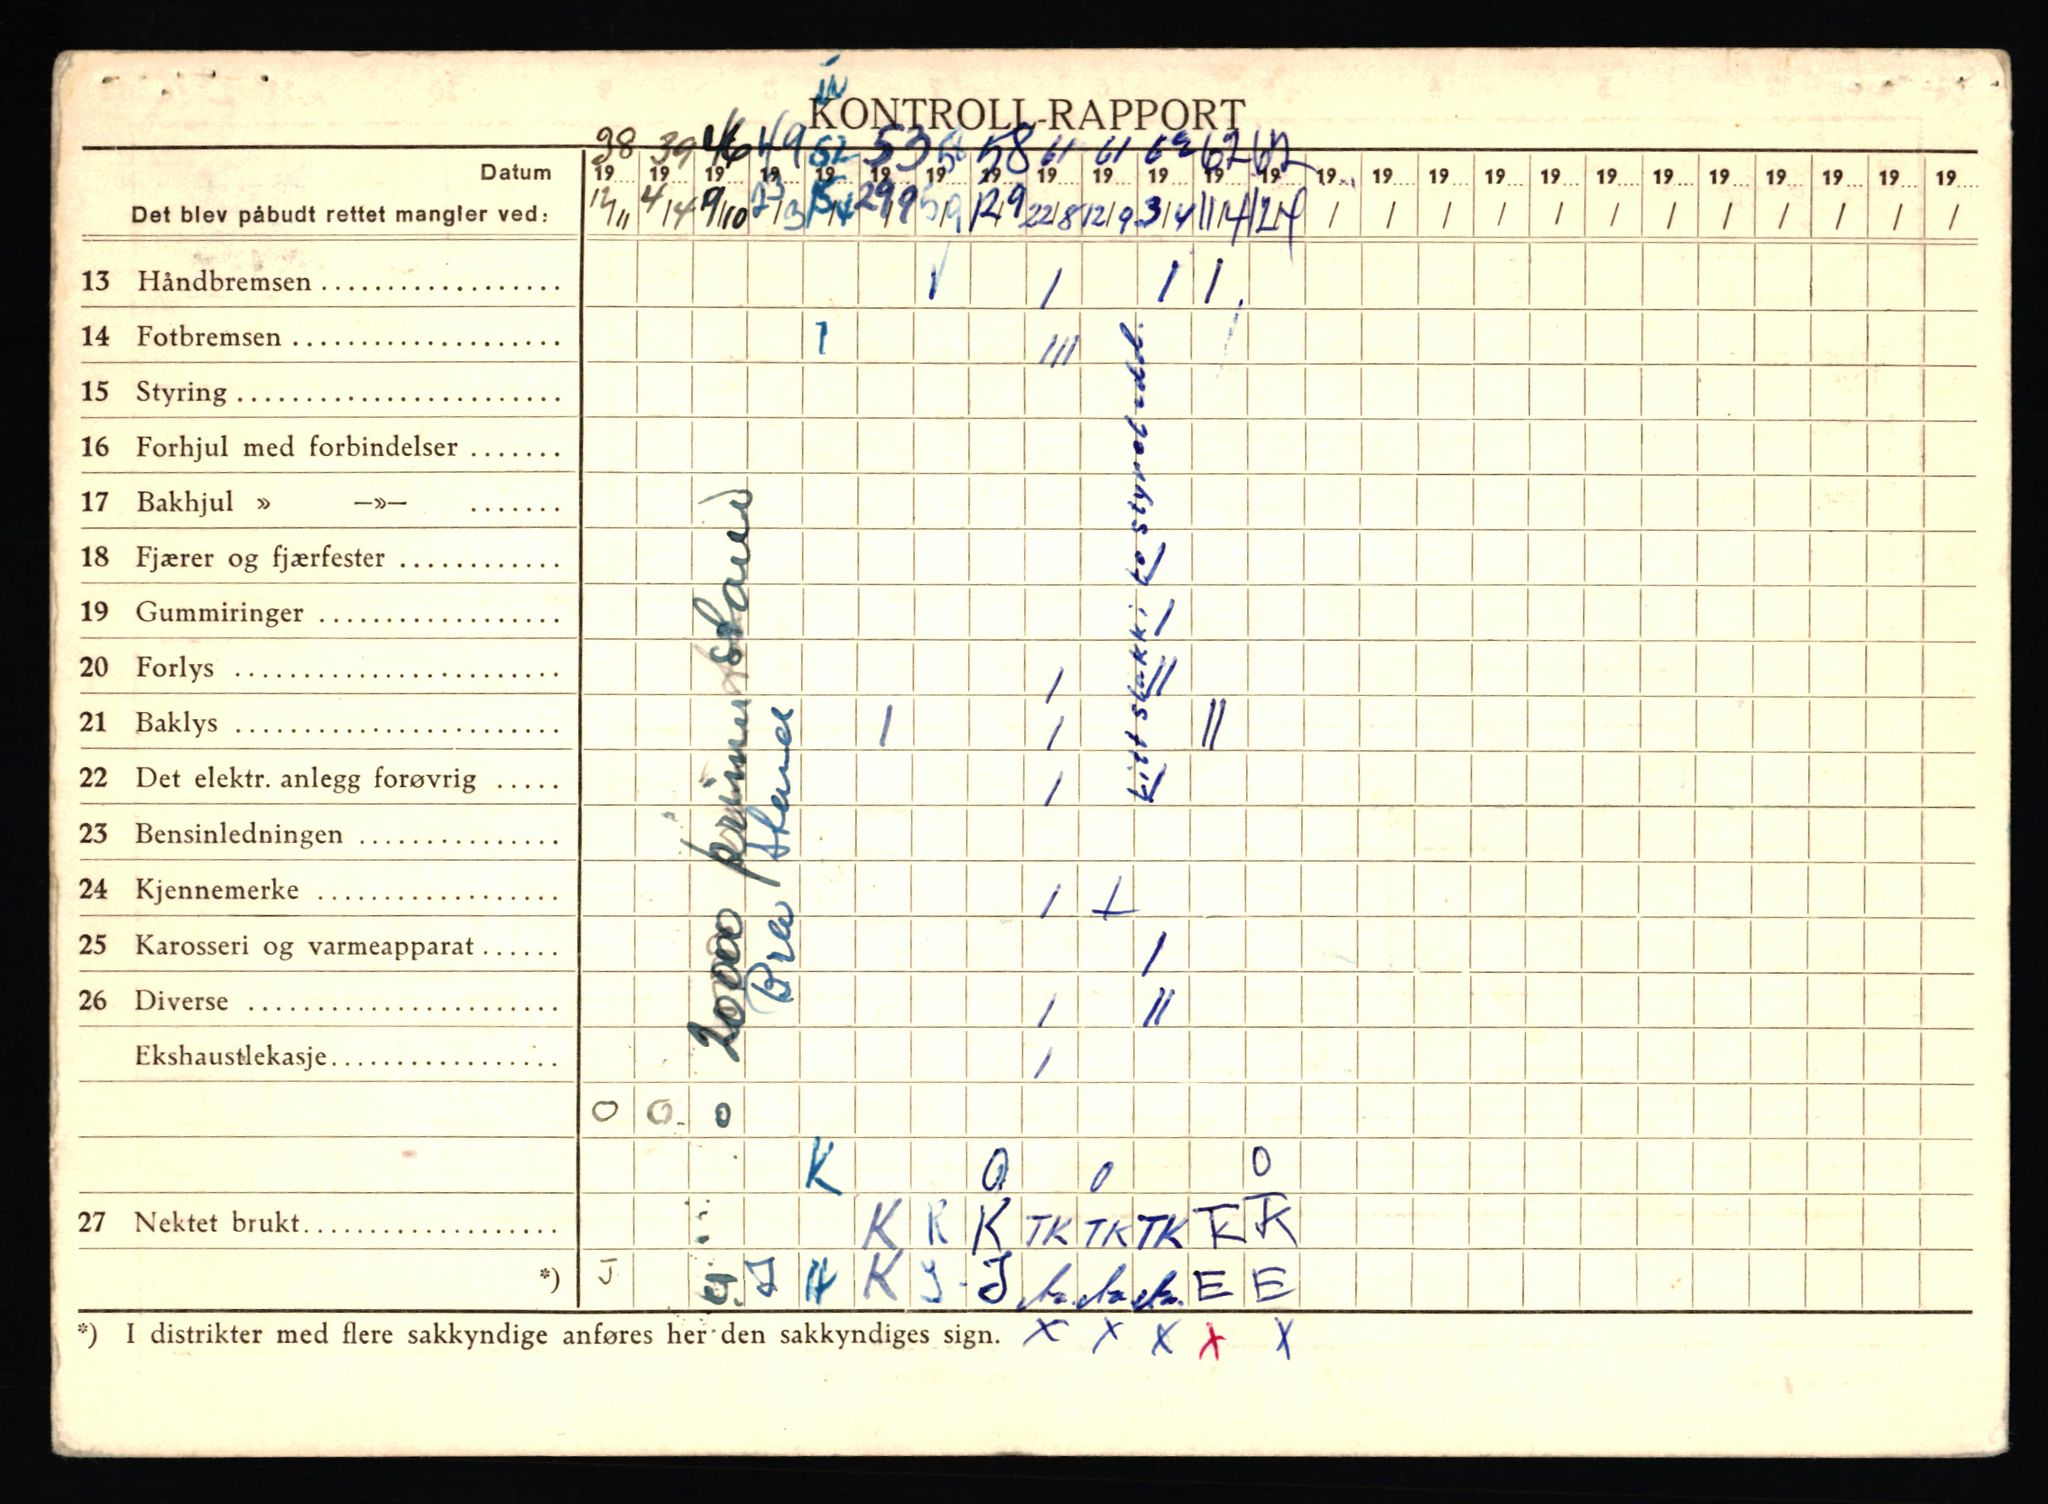 KONTROLL-RAPPORT
38 39 46 49 52 53 58 58 61 61 62 62 62
Datum 19 19 19 19 19 19 19 19 19 19 19 19 19 19 19 19 19 19 19 19 19 19 19 19 19
Det blev påbudt rettet mangler ved: 4/4 9/10 23/3 15/4 29/9 5/9 12/9 22/8 12/9 3/4 11/4 12/4 / / / / / / / / / / / /
13 Håndbremsen I I I I
14 Fotbremsen I III
15 Styring
16 Forhjul med forbindelser
17 Bakhjul » —»—
18 Fjærer og fjærfester
19 Gummiringer I
20 Forlys I II
21 Baklys I I II
22 Det elektr. anlegg forøvrig I
23 Bensinledningen
24 Kjennemerke I
25 Karosseri og varmeapparat I
26 Diverse I II
Ekshaustlekasje I
O O O
K O O O
27 Nektet brukt K K K TK TK TK TK TK
*) J J H K J J E E
*) I distrikter med flere sakkyndige anføres her den sakkyndiges sign. X X X X X
prima stand
Bra stand
litt slakk i